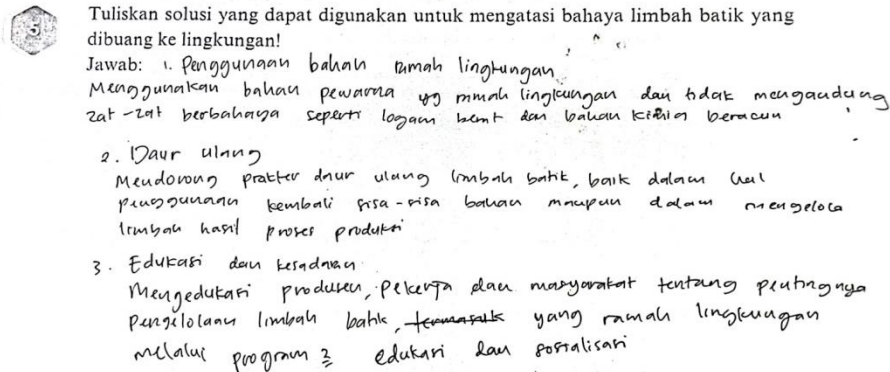 5
Tuliskan solusi yang dapat digunakan untuk mengatasi bahaya limbah batik yang
dibuang ke lingkungan!
Jawab: 1. Penggunaan bahan ramah lingkungan
Menggunakan bahan pewarna yg ramah lingkungan dan tidak mengandung
zat-zat berbahaya seperti logam berat dan bahan kimia beracun
2. Daur ulang
Mendorong praktek daur ulang limbah batik, baik dalam hal
penggunaan kembali sisa-sisa bahan maupun dalam mengelola
limbah hasil proses produksi
3. Edukasi dan kesadaran
Mengedukasi produsen, pekerja dan masyarakat tentang pentingnya
pengelolaan limbah batik, termasuk yang ramah lingkungan
melalui program2 edukasi dan sosialisasi